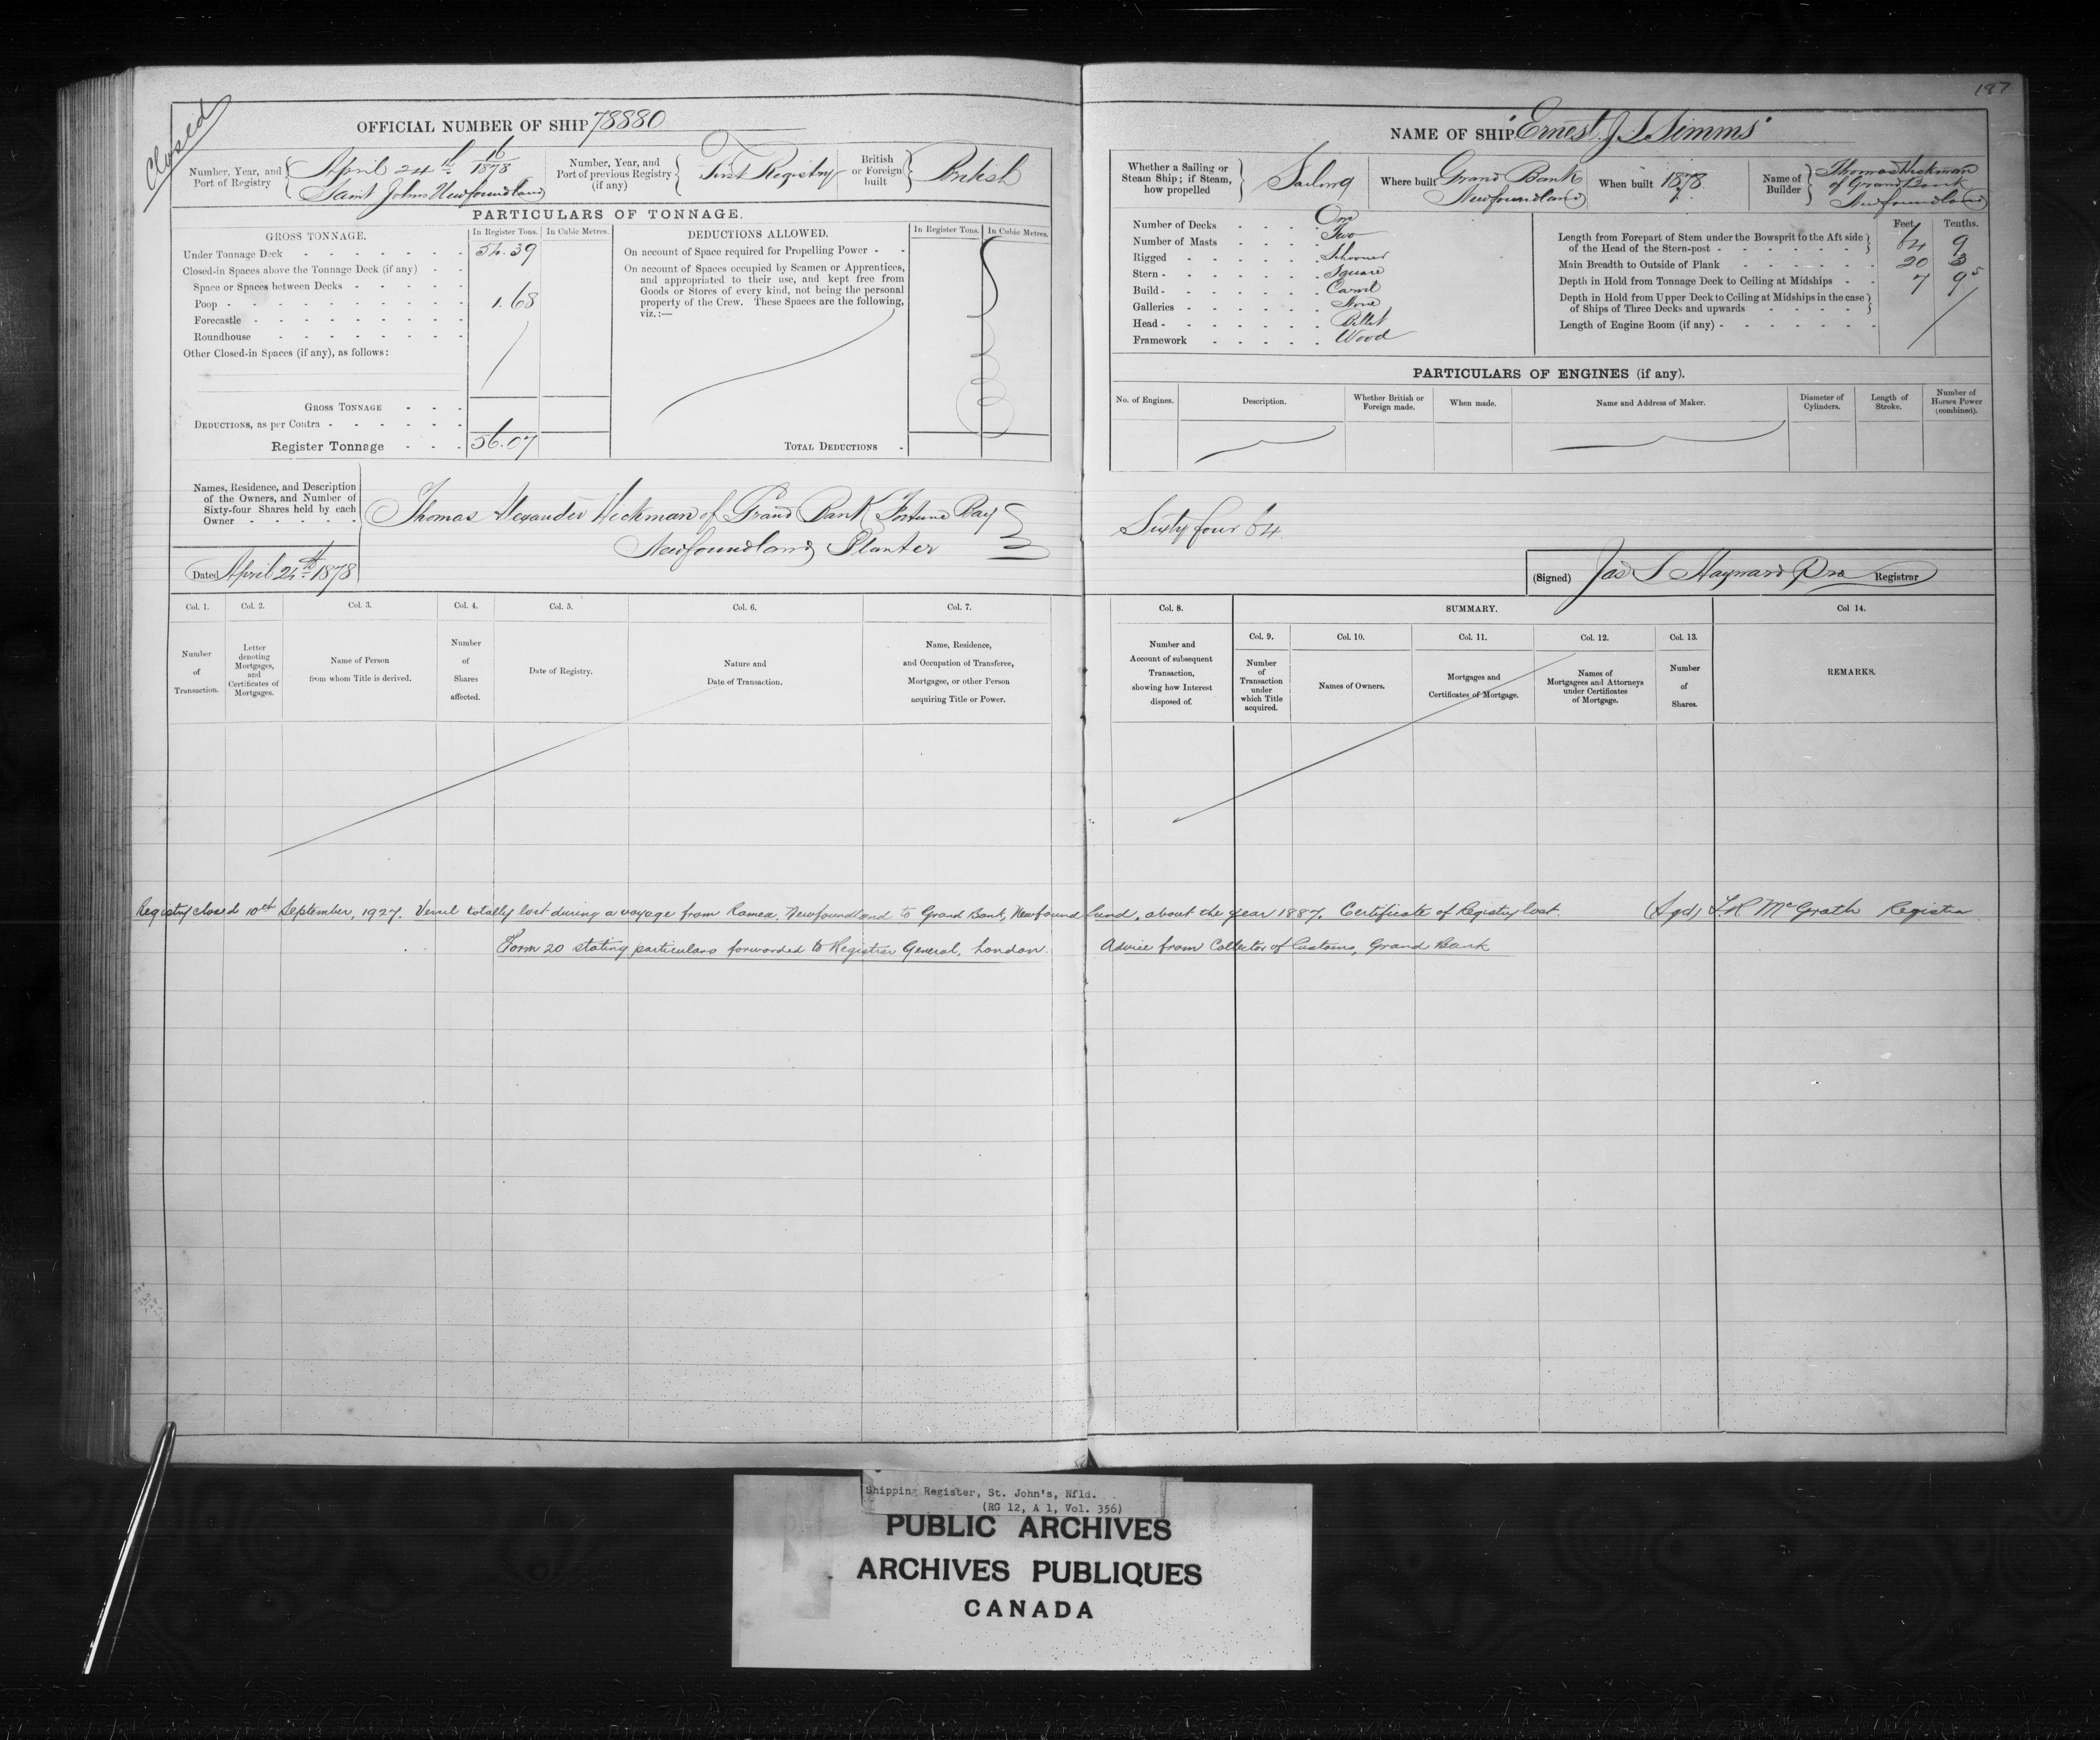 187
Closed
OFFICIAL NUMBER OF SHIP 78880
Number, Year, and Port of Registry { April 24th 16/1878 Saint Johns Newfoundland
Number, Year, and Port of previous Registry (if any) { First Registry
British or Foreign built } British
PARTICULARS OF TONNAGE.
GROSS TONNAGE. In Register Tons. In Cubic Metres.
Under Tonnage Deck 54.39
Closed-in Spaces above the Tonnage Deck (if any)
Space or Spaces between Decks
Poop 1.68
Forecastle
Roundhouse
Other Closed-in Spaces (if any), as follows:
GROSS TONNAGE
DEDUCTIONS, as per Contra
Register Tonnage 56.07
DEDUCTIONS ALLOWED. In Register Tons. In Cubic Metres.
On account of Space required for Propelling Power
On account of Spaces occupied by Seamen or Apprentices,
and appropriated to their use, and kept free from
Goods or Stores of every kind, not being the personal
property of the Crew. These Spaces are the following,
viz.:—
TOTAL DEDUCTIONS
Names, Residence, and Description
of the Owners, and Number of
Sixty-four Shares held by each
Owner
Thomas Alexander Hickman of Grand Bank Fortune Bay
Newfoundland Planter
Dated April 24th 1878
NAME OF SHIP "Ernest J. S. Simms"
Whether a Sailing or Steam Ship; if Steam, how propelled } Sailing
Where built Grand Bank Newfoundland
When built 1878.
Name of Builder } Thomas Hickman of Grand Bank Newfoundland
Number of Decks One
Number of Masts Two
Rigged Schooner
Stern Square
Build Carvel
Galleries None
Head Billet
Framework Wood
Feet. Tenths.
Length from Forepart of Stem under the Bowsprit to the Aft side
of the Head of the Stern-post 64 9
Main Breadth to Outside of Plank 20 3
Depth in Hold from Tonnage Deck to Ceiling at Midships 7 9 5
Depth in Hold from Upper Deck to Ceiling at Midships in the case
of Ships of Three Decks and upwards
Length of Engine Room (if any)
PARTICULARS OF ENGINES (if any).
No. of Engines. Description. Whether British or Foreign made. When made. Name and Address of Maker. Diameter of Cylinders. Length of Stroke. Number of Horses Power (combined).
Sixty four 64
(Signed) Jas S Hayward Registrar
Col. 1. Col. 2. Col. 3. Col. 4. Col. 5. Col. 6. Col. 7.
Number of Transaction.
Letter denoting Mortgages, and Certificates of Mortgages.
Name of Person from whom Title is derived.
Number of Shares affected.
Date of Registry.
Nature and Date of Transaction.
Name, Residence, and Occupation of Transferee, Mortgagee, or other Person acquiring Title or Power.
Col. 8. SUMMARY. Col 14.
Col. 9. Col. 10. Col. 11. Col. 12. Col. 13.
Number and Account of subsequent Transaction, showing how Interest disposed of.
Number of Transaction under which Title acquired.
Names of Owners.
Mortgages and Certificates of Mortgage.
Names of Mortgagees and Attorneys under Certificates of Mortgage.
Number of Shares.
REMARKS.
Registry closed 10th September, 1927. Vessel totally lost during a voyage from Ramea, Newfoundland to Grand Bank, Newfoundland, about the year 1887. Certificate of Registry lost. (Sgd) McGrath Registrar
Form 20 stating particulars forwarded to Registrar General, London. Advice from Collector of Customs, Grand Bank
Shipping Register, St. John's, Nfld.
(RG 12, A 1, Vol. 356)
PUBLIC ARCHIVES
ARCHIVES PUBLIQUES
CANADA